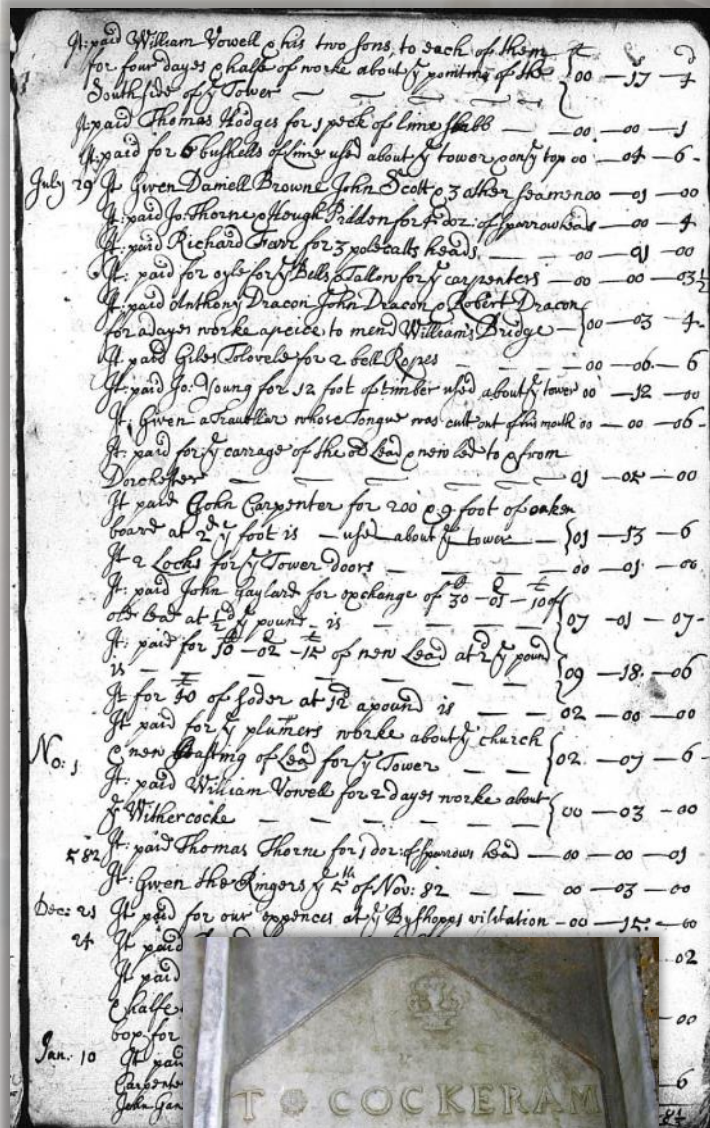 It: paid William Vowell & his two sons, to each of them li s d
for four dayes & halfe of worke about ye pointing of the
South side of ye Tower — — — 00 — 17 — 4
It: paid Thomas Hodges for 1 peck of lime — — 00 — 00 — 1
It: paid for 6 bushells of lime used about ye tower & on ye top 00 — 04 — 6 -
July 29 It Given Daniell Browne John Scott & 3 other seamen 00 — 01 — 00
It: paid Jo: Thorne & Hough Pidden for 4 doz: of sparrow heads — 00 — 4
It: paid Richard Farr for 3 polecatts heads — — 00 — 01 — 00
It: paid for oyle for ye Bells & Tallow for ye carpenters — 00 — 00 — 03½
It: paid Anthony Dracon John Dracon & Robert Dracon
for a dayes worke apeice to mend William's Bridge — 00 — 03 — 4 -
It paid Giles for 2 bell Ropes — — — 00 — 06 - 6
It: paid Jo: Young for 12 foot of timber used about ye tower 00 — 12 — 00
It, Given a Traveller whose Tongue was cutt out of his mouth 00 — 00 — 06 -
It: paid for ye carrage of the old Lead & new led to & from
Dorchester — — — 01 — 02 — 00
It paid John Carpenter for 200 & 9 foot of oaken
board at 2d ye foot is — used about ye tower — 01 — 13 — 6
It 2 Locks for ye Tower doors — — — 00 — 01 — 00
It: paid John Gaylard for exchange of 30 — 01 — 10 of
old lead at ½d ye pound - is — — 07 — 01 — 07 -
It: paid for 10 — 02 — 12 of new Lead at 2d ye pound
is — — — — 09 — 18 — 06
It for 40 of soder at 12d a pound is — — 02 — 00 — 00
It paid for ye plumers worke about ye church
& new Casting of Lead for ye Tower — — 02 — 07 — 6 -
No: 1 It: paid William Vowell for 2 dayes worke about
ye Withercocke — — — 00 — 03 — 00
5 82 It: paid Thomas Thorne for 1 doz: of sparrows head — 00 — 00 — 01
It: Given the Ringers ye 5th of Nov: 82 — — 00 — 03 — 00
Dec: 21 It paid for our expences at ye Byshopps visitation - 00 — 15 - 00
24 It paid 02
It paid
& halfe 00
box for
Jan: 10 It paid
Carpente 6
John Gan
T COCKERAM